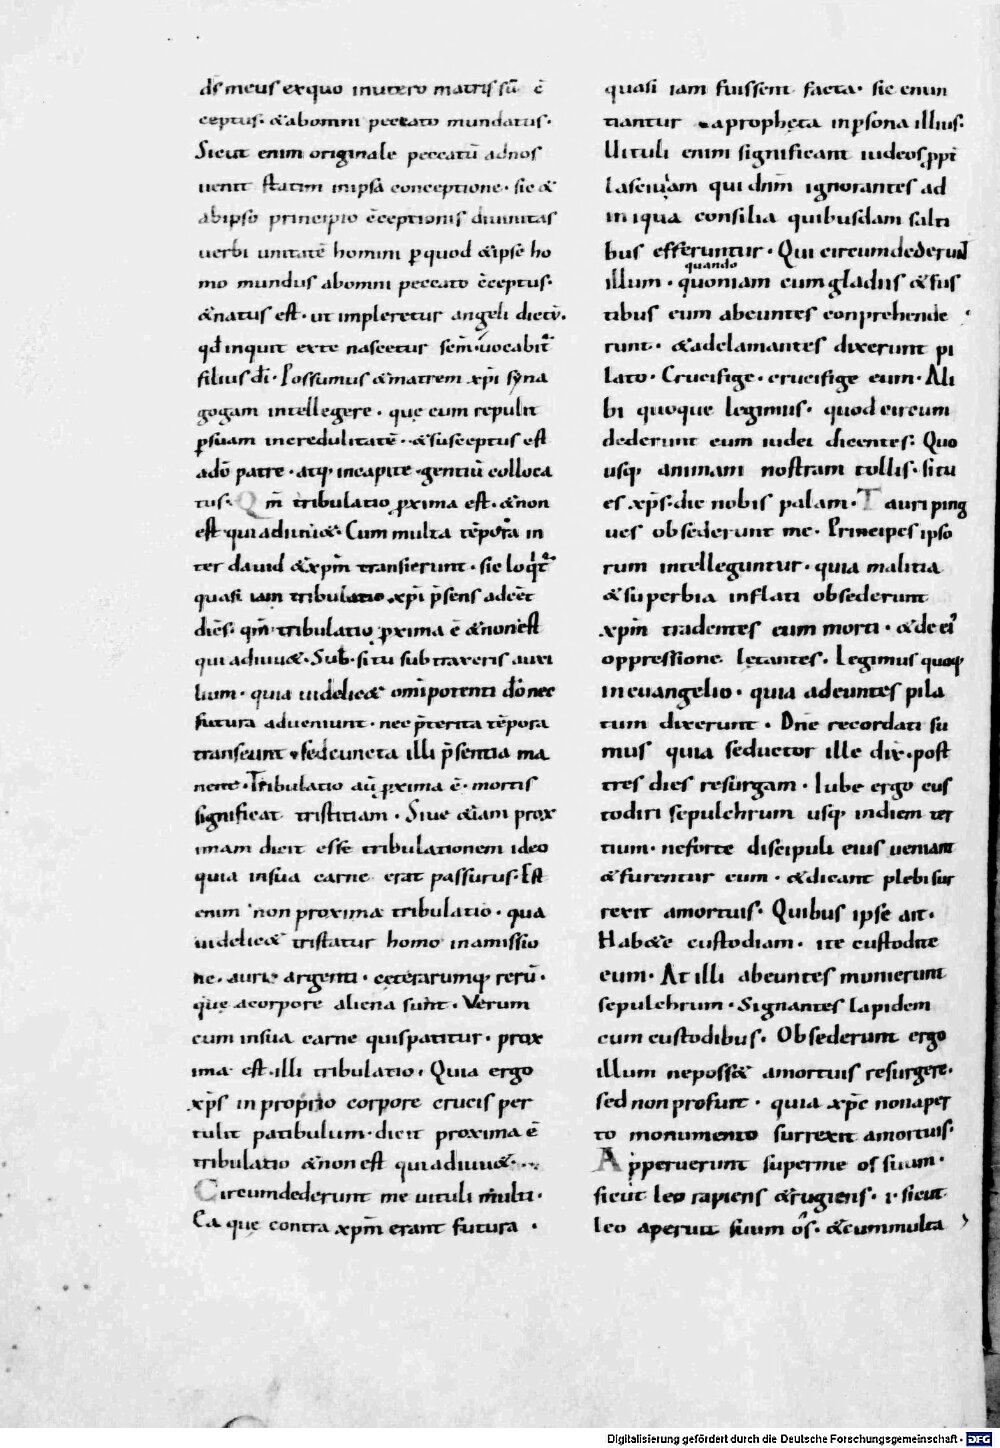 ds̄ meus exquo inutero matris sū c̄
ceptus. &abomni peccato mundatus.
Sicut enim originale peccatū adnos
uenit statim inipsa conceptione. sic &
abipso principio c̄ceptionis diuinitas
uerbi unitatē homini p quod &ipse ho
mo mundus abomni peccato c̄ceptus.
&natus est. ut impleretur angeli dictū.
qd̄ inquit exte nascetur sem̄. uocabit̄
filius dī. Possumus &matrem xp̄i syna
gogam intellegere. quę eum repulit
p suam incredulitatē. &susceptus est
adō patre. atq; incapite gentiū colloca
tus. Qm̄ tribulatio proxima est. &non
est qui adiuu&. Cum multa tēpora in
ter dauid &xpm̄ transierunt. sic loqt̄
quasi iam tribulatio xp̄i p̄sens adeēt
dies. qm̄ tribulatio proxima ē &nonest
qui adiuu&. Sub. si tu subtraxeris auxi
lium. quia uidelic& om̄ipotenti dō nec
futura adueniunt. nec p̄terita tēpora
transeunt. sedcuncta illi p̄sentia ma
nent. Tribulatio aū proxima ē. mortis
significat tristitiam. Siue &iam prox
imam dicit esse tribulationem ideo
quia insua carne erat passurus. Est
enim non proxima tribulatio. qua
uidelic& tristatur homo inamissio
ne. auri argenti. cęterarumq; rerū.
quę acorpore aliena sunt. Verum
cum insua carne quispatitur. prox
ima est. illi tribulatio. Quia ergo
xp̄s in proprio corpore crucis per
tulit patibulum. dicit proxima ē
tribulatio &non est qui adiuu&.
Circumdederunt me uituli multi.
Ea quę contra xpm̄ erant futura.
quasi iam fuissent facta. sic enun
tiantur aprophęta inpsona illius.
Uituli enim significant iudeos ppt̄
lasciuiam qui dnm̄ ignorantes ad
iniqua consilia quibusdam salti
bus efferuntur. Qui circumdederunt
quando
illum. quoniam cumgladiis &fus
tibus eum abeuntes conprehende
runt. &adclamantes dixerunt pi
lato. Crucifige. crucifige eum. Ali
bi quoque legimus. quod circum
dederunt eum iudei dicentes. Quo
usq; animam nostram tollis. si tu
es xp̄s. dic nobis palam. Tauri ping
ues obsederunt me. Principes ipso
rum intelleguntur. quia malitia
&superbia inflati obsederunt
xpm̄ tradentes eum morti. &de ei'
oppressione lętantes. Legimus quoq;
ineuangelio. quia adeuntes pila
tum dixerunt. Dn̄e recordati su
mus quia seductor ille dix̄. post
tres dies resurgam. Iube ergo cus
todiri sepulchrum usq; indiem ter
tium. neforte discipuli eius ueniant
&furentur eum. &dicant plebi sur
rexit amortuis. Quibus ipse ait.
Hab&e custodiam. ite custodite
eum. At illi abeuntes munierunt
sepulchrum. Signantes lapidem
cum custodibus. Obsederunt ergo
illum neposs& amortuis resurgere.
sed non profuit. quia xp̄c nonaper
to monumento surrexit amortuis.
Apperuerunt superme os suum.
sicut leo rapiens &rugiens. i. sicut
leo aperuit suum os̄. &cummulta
Digitalisierung gefördert durch die Deutsche Forschungsgemeinschaft - DFG